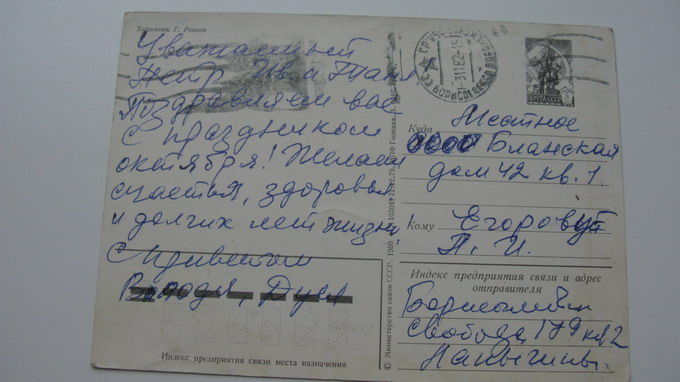 Художник Г. Ренков
Уважаемый
Петр Ив. и Таня
Поздравляем вас
с праздником
октября! Желаем
счастья, здоровья
и долгих лет жизни,
С приветом
Володя, Дуся
Индекс предприятия связи места назначения
© Министерство связи СССР. 1980
Куда
Местное
Бланская
дом 42 кв. 1.
Кому
Егорову
П. И.
Индекс предприятия связи и адрес
отправителя
свобода, 179 кв 2